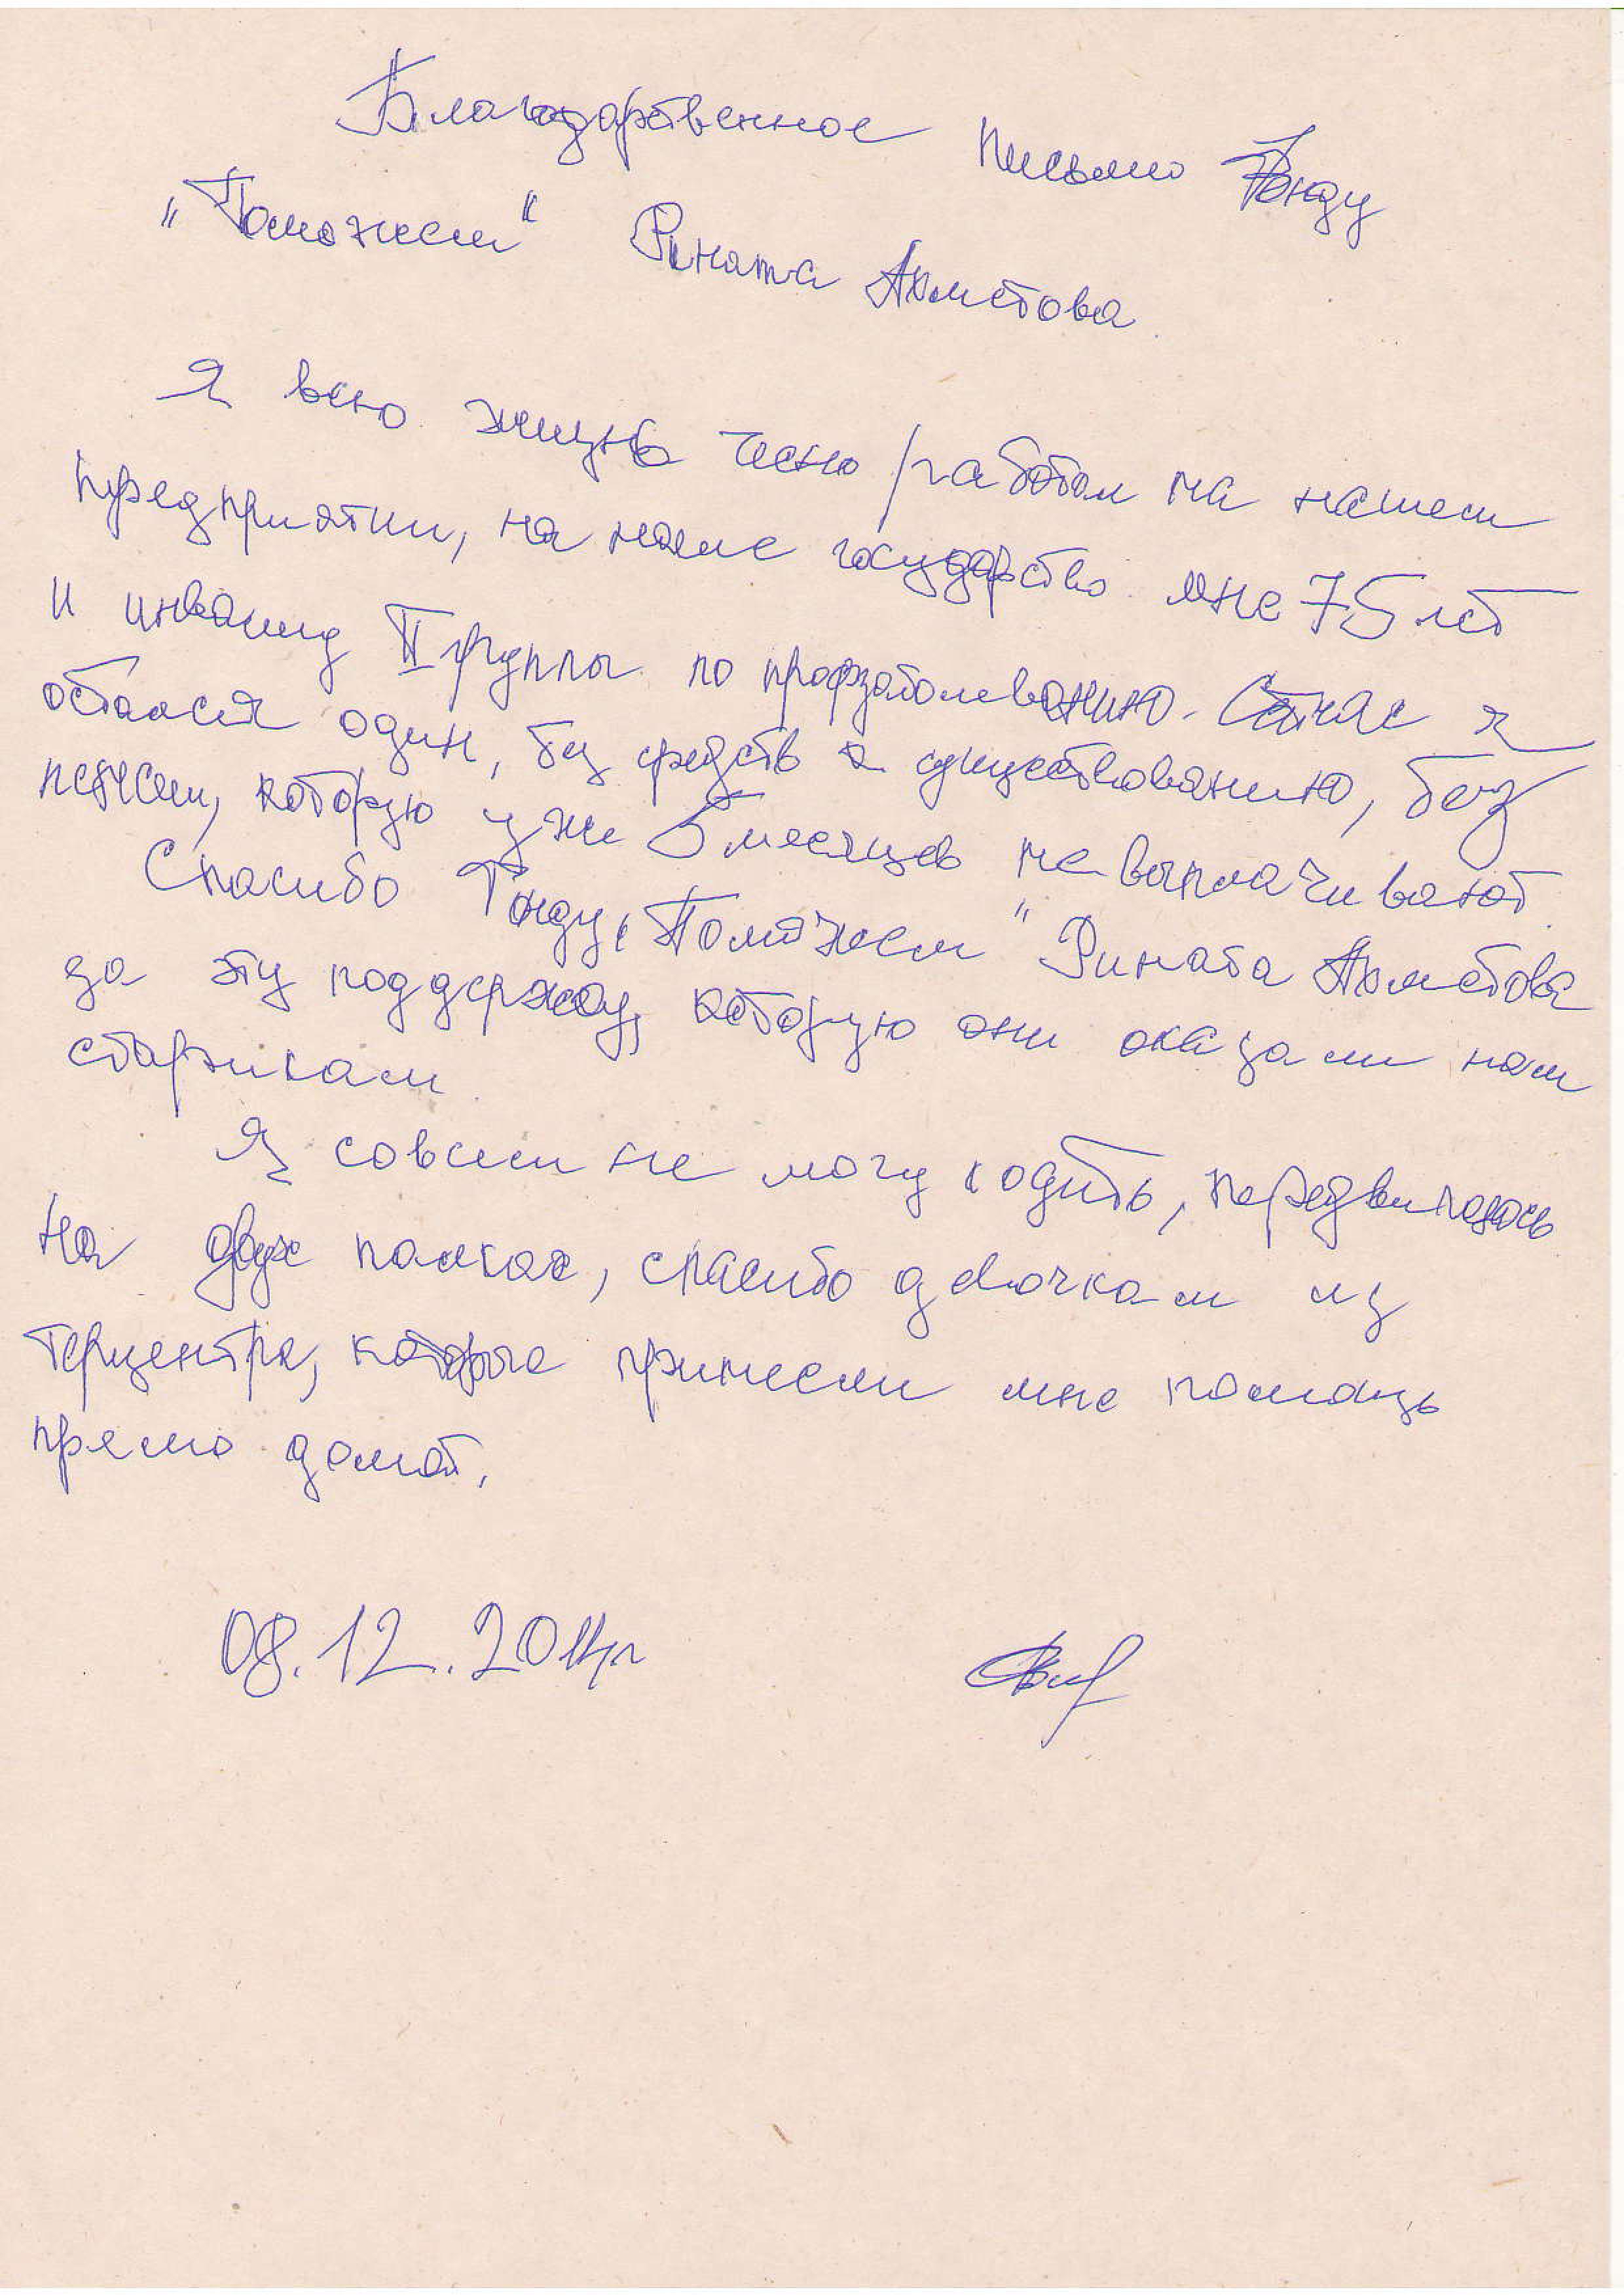 Благодарственное письмо Фонду
"Поможем" Рината Ахметова
Я всю жизнь чесно работал на нашем
предприятии, на наше государство. мне 75 лет
и инвалид II группы по профзаболеванию. Сейчас я
остался один, без средств к существованию, без
пенсии, которую уже 5 месяцев не выплачивают.
Спасибо Фонду "Поможем" Рината Ахметова
за эту поддержку, которую они оказали нам
старикам.
Я совсем не могу ходить, передвигаюсь
на двух палках, спасибо девочкам из
терцентра, которые принесли мне помощь
прямо домой.
08.12.2014г